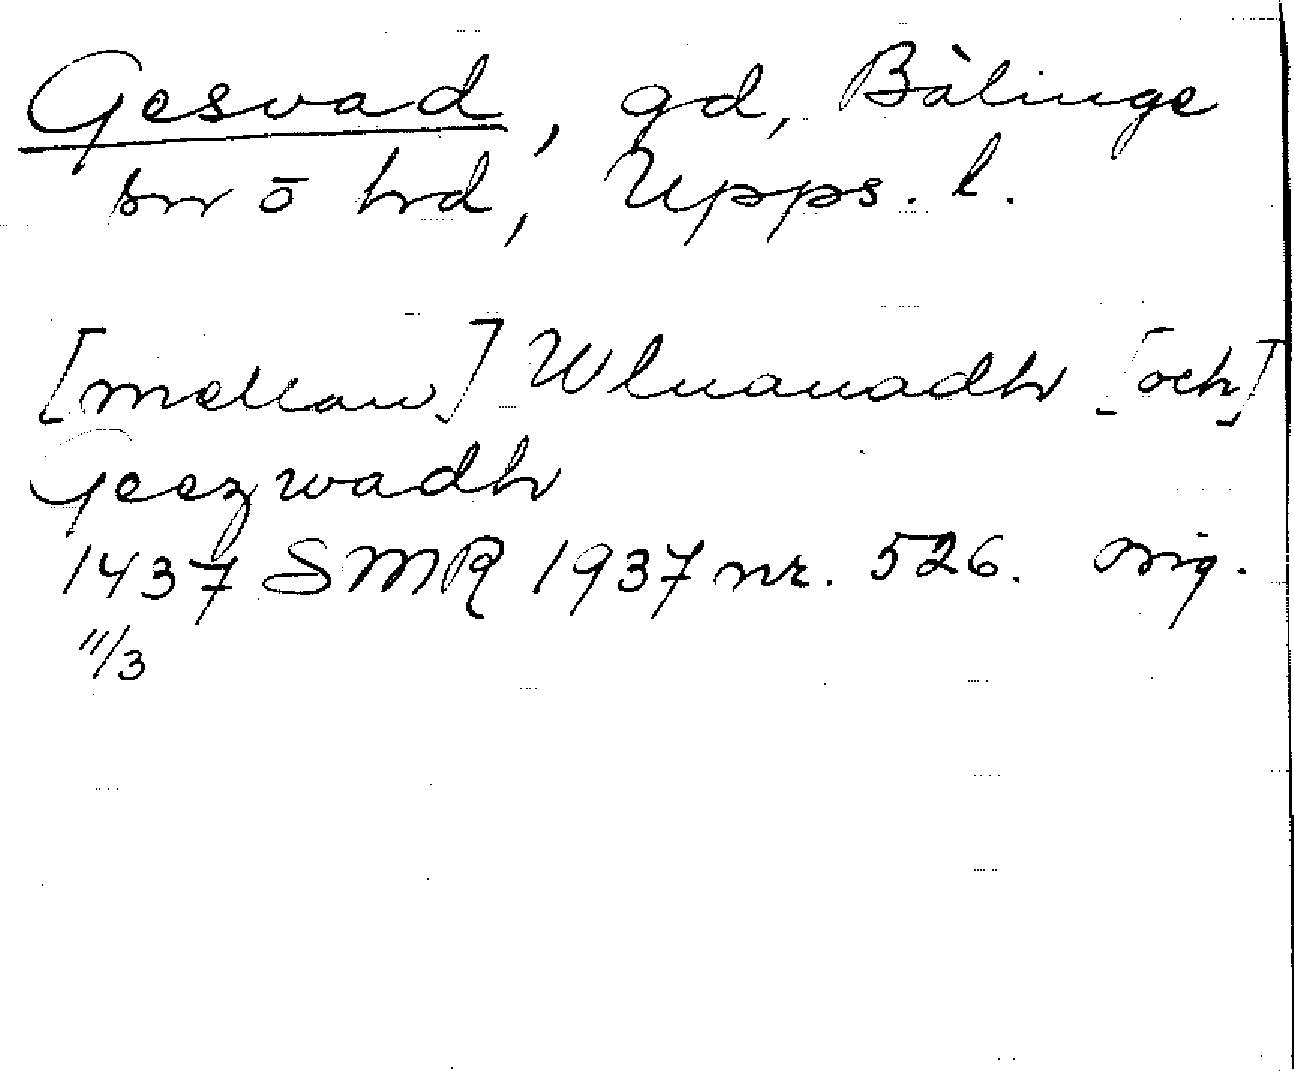 Gesvad, gd, Bälinge
sn o hd, Upps. l.
[mellan] Wlnanadh [och]
Geezwadh
1437 SMR 1937 nr. 526. orig.
11/3